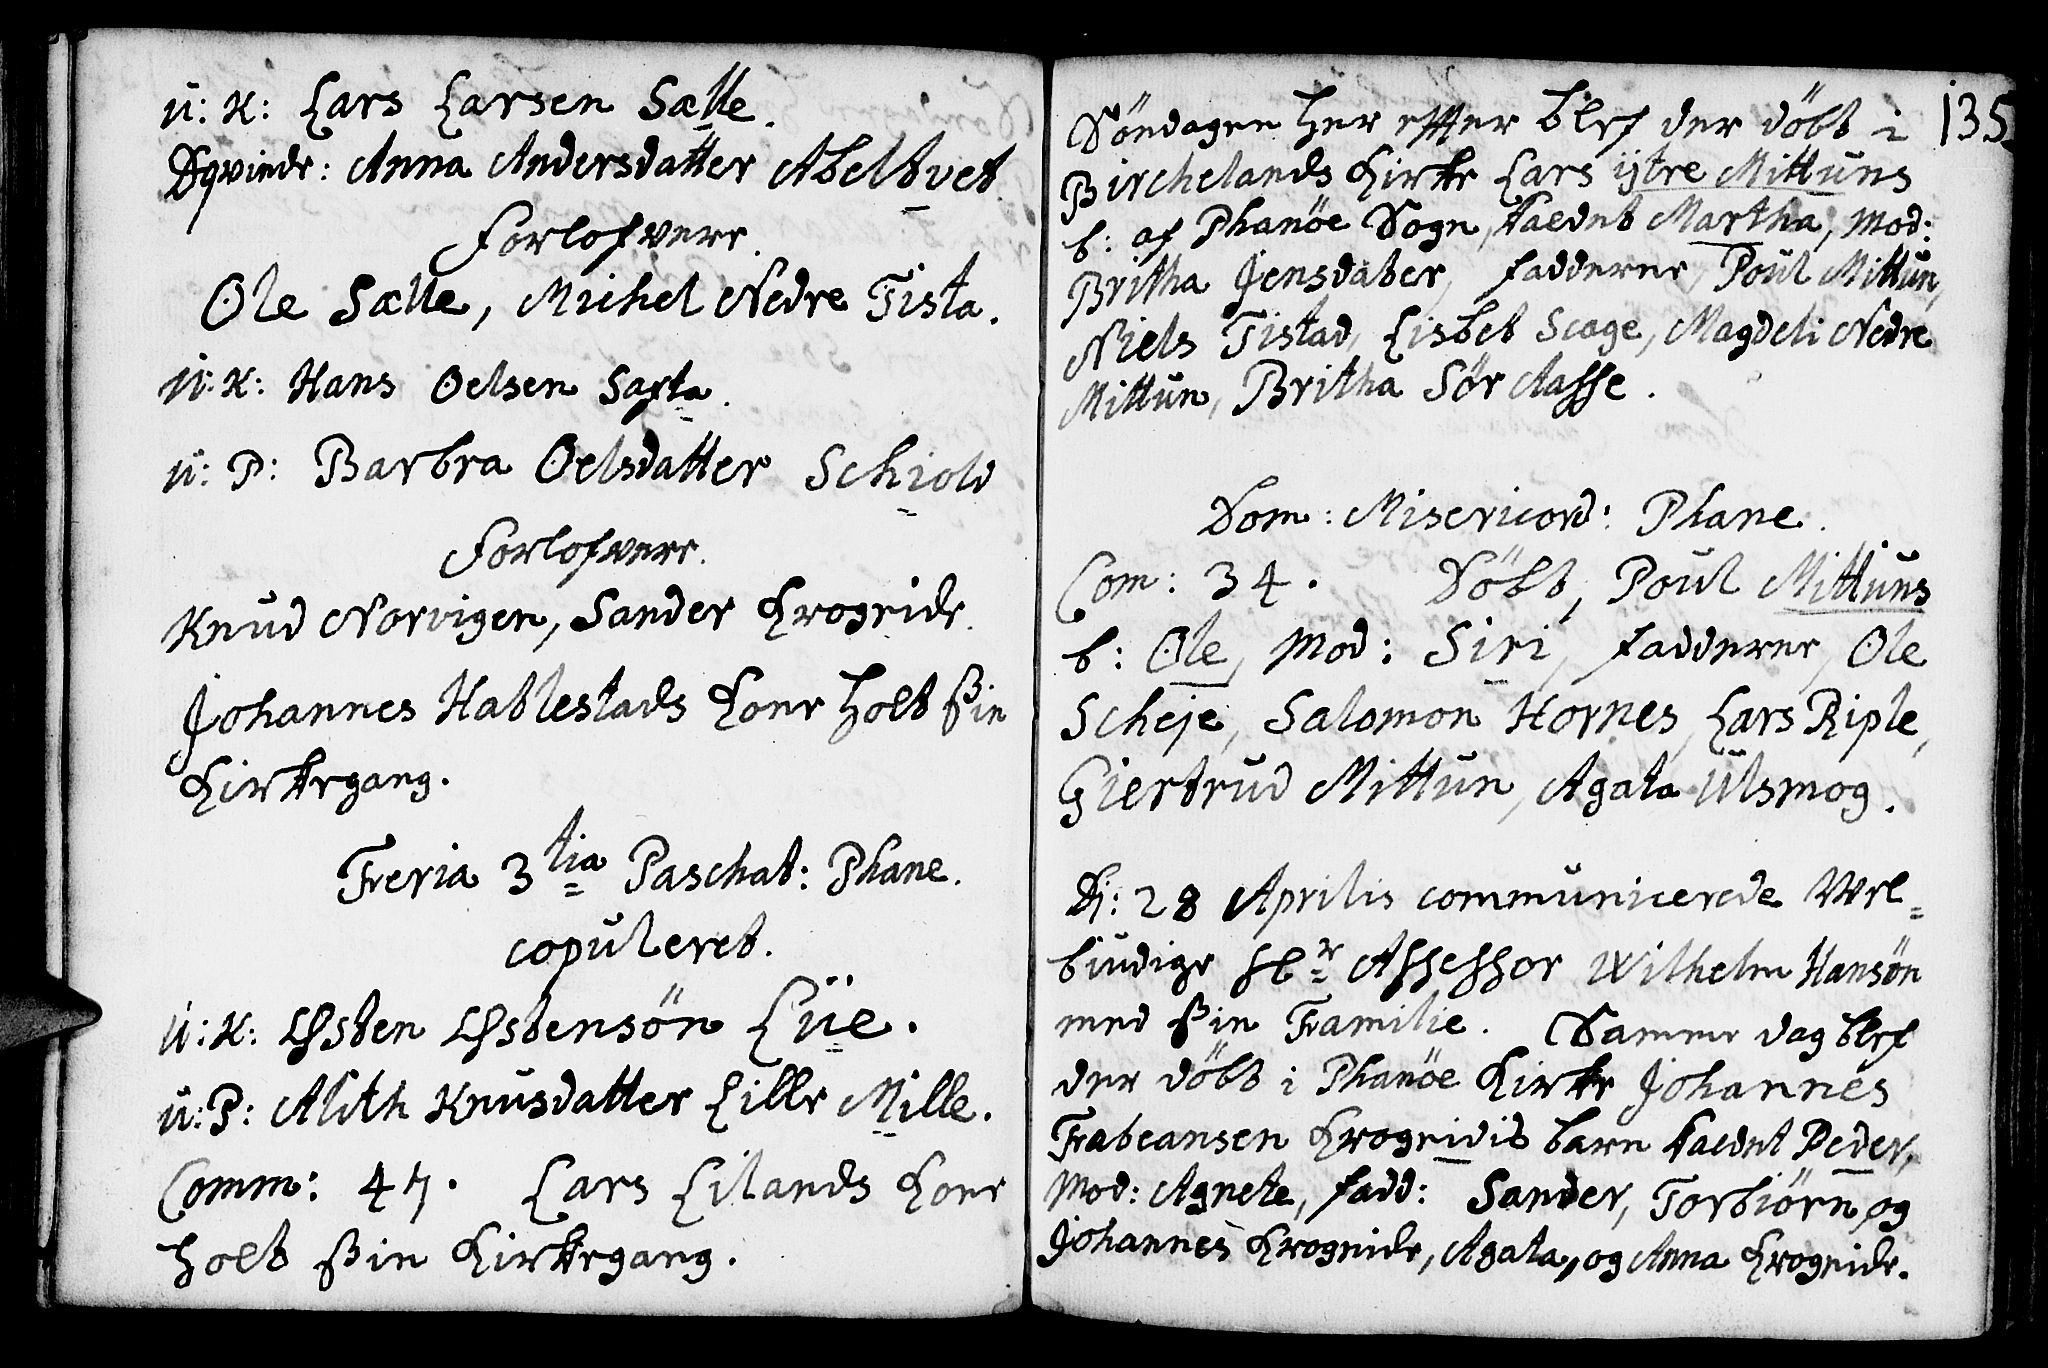 u: K: Lars Larsen Sælle.
Qvinde: Anna Andersdatter Abeltvet.
Forlofvere.
Ole Sælle, Michel Nedre Tista.
u: K: Hans Oelsen Saxta.
u: P: Barbra Oelsdatter Schiold
Forlofvere.
Knud Norvigen, Sander Krogeide.
Johannes Hatlestads Kone holt sin
Kirkegang.
Feria 3tia Paschat: Phane.
copuleret.
u: K: Østen Østensön Lüe.
u: P: Alith Knudsdatter Lille Mille.
Comm: 47. Lars Lilands Kone
holt sin Kirkegang.
135
Söndagen her effter blef der döbt i
Birchelands Kirke Lars ytre Mittuns
b: af Phanöe Sogn, kaldet Martha, Mod:
Britha Jensdater, fadderne, Poul Mittun,
Niels Tistad, Lisbet Scage, Magdeli Nedre
Mittun, Britha Sör Aasse.
Dom: Misericord: Phane.
Com: 34. Döbt, Poul Mittuns
b: Ole, Mod: Siri, fadderne, Ole
Scheje, Salomon Hornes, Lars Riple,
Giertrud Mittun, Agata Ulsmog.
D: 28 Aprilis communicerede Wel=
biudige Hr Assessor Wilhelm Hansön
med sin Familie. Samme dag blef
der döbt i Phanöe Kirke Johannes
Fabeansen Krogeidis barn kaldet Peder,
Mod: Agnete, fadd: Sander, Torbiörn og
Johannes Krogeide, Agata, og Anna Krogeide.